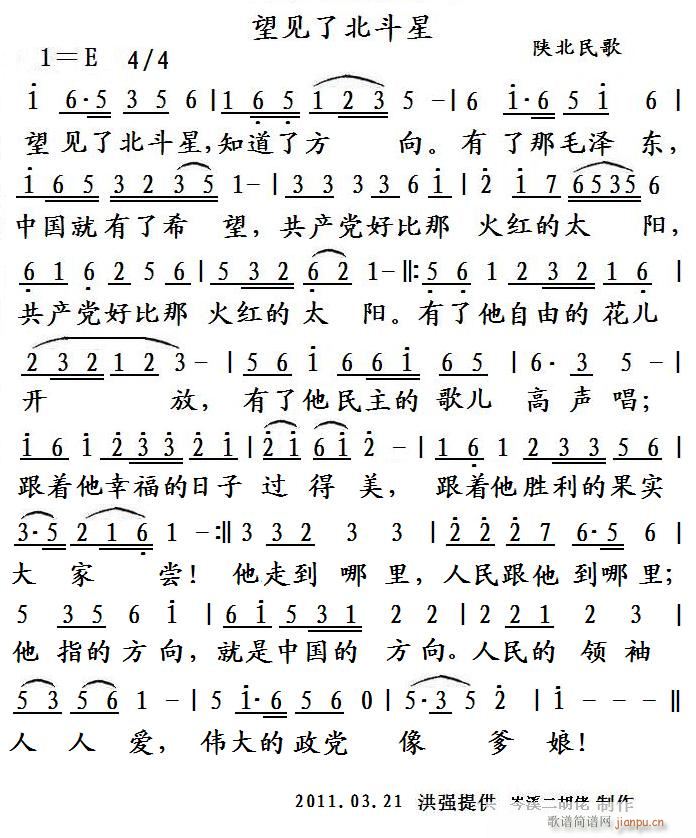 望见了北斗星
1=E 4/4 陕北民歌
i 6·5 3 5 6 | 1 6 5 1 2 3 5 - | 6 i·6 5 i 6 |
望见了北斗星,知道了方 向。有了那毛泽 东,
i 6 5 3 2 3 5 1 - | 3 3 3 6 i | 2 i 7 6535 6
中国就有了希 望，共产党好比那 火红的太 阳,
6 1 6 2 5 6 | 5 3 2 6 2 1 - :5 6 1 2 3 2 1 6 |
共产党好比那 火红的太 阳。有了他自由的 花儿
2 3 2 1 2 3 - | 5 6 i 6 6 i 6 5 | 6· 3 5 - |
开 放, 有了他民主的 歌儿 高声唱;
i 6 i 2 3 3 2 2 | 2 i 6 i 2 - | 1 6 1 2 3 3 5 6 |
跟着他幸福的日子 过得美, 跟着他胜利的果实
3·5 2 1 6 1 - :‖ 3 3 2 3 3 | 2 2 2 7 6·5 6 |
大家 尝! 他走到 哪里,人民跟他 到哪里;
5 3 5 6 i | 6 i 5 3 1 2 2 | 2 2 1 2 3 |
他 指的方向,就是中国的 方向。人民的 领袖
5 3 5 6 1 - | 5 i·6 5 6 0 | 5·3 5 2 | i - - - ‖
人 人 爱, 伟大的政党 像 爹 娘!
2011.03.21 洪强提供 岑溪二胡佬 制作
歌谱简谱网
jianpu.cn